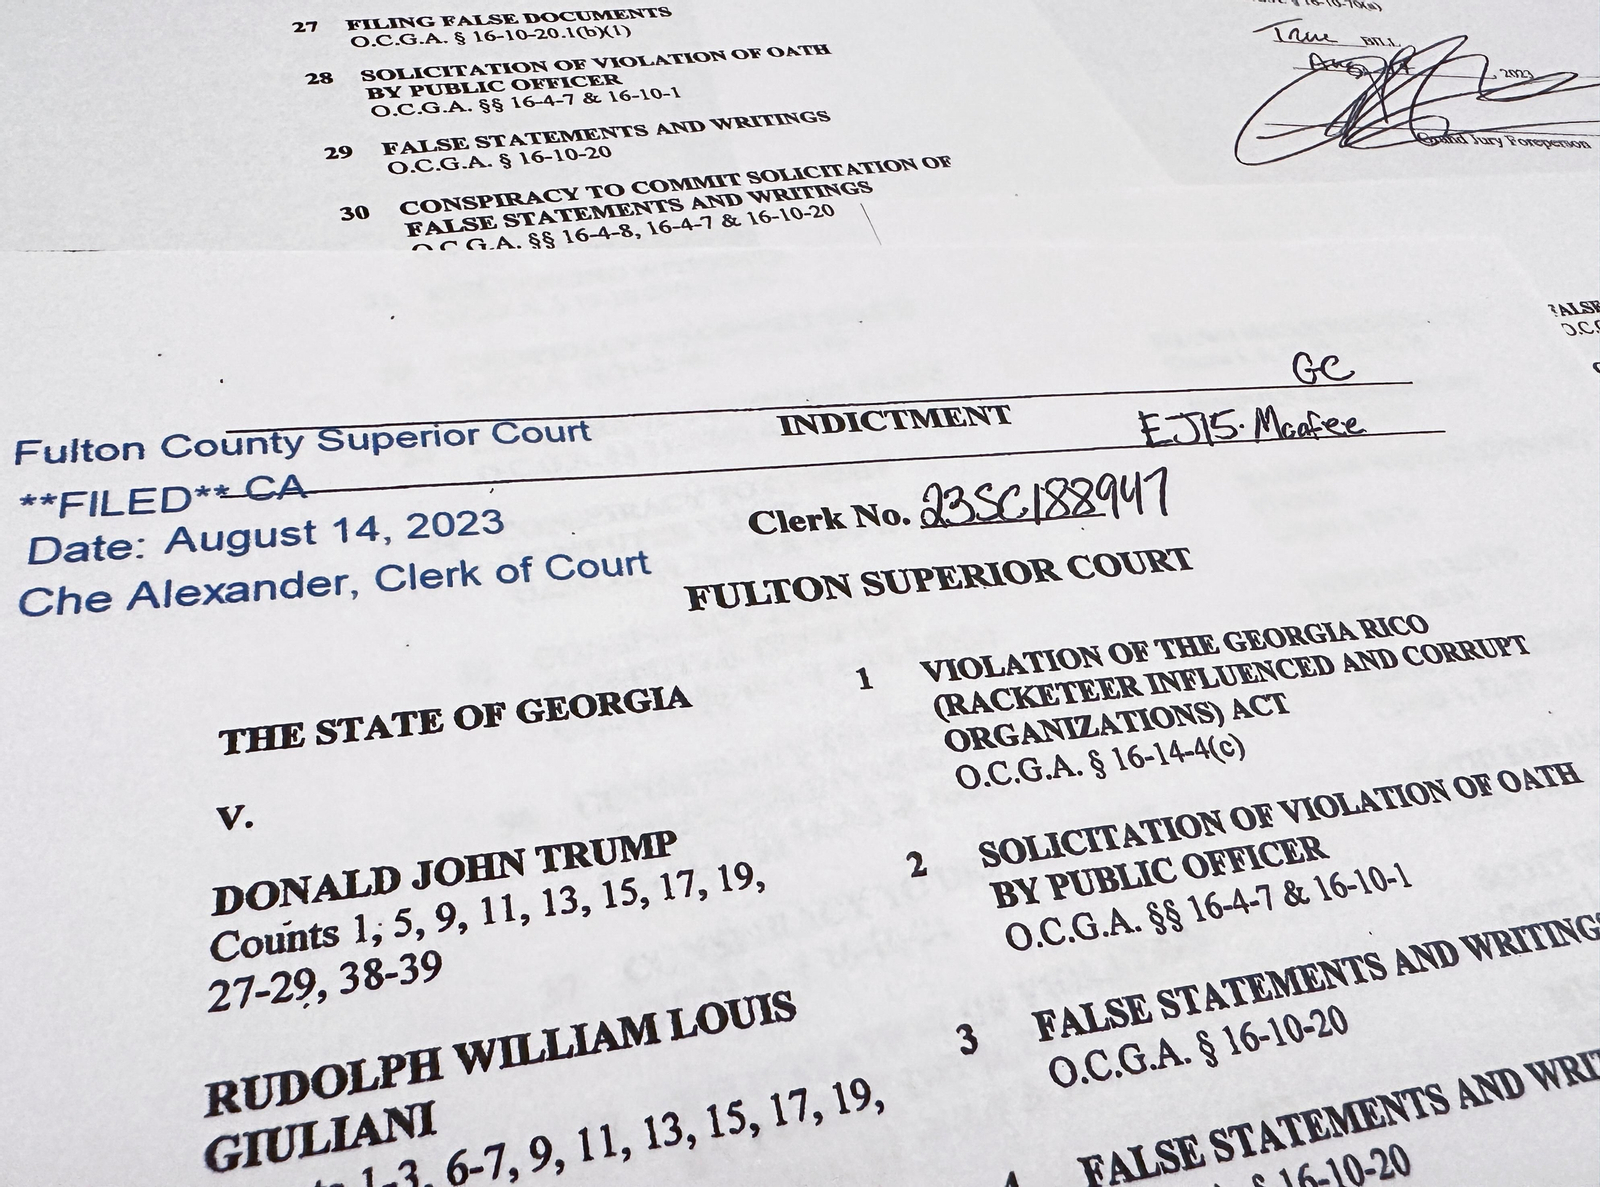 27 FILING FALSE DOCUMENTS
O.C.G.A. § 16-10-20.1(b)(1)
28 SOLICITATION OF VIOLATION OF OATH
BY PUBLIC OFFICER
O.C.G.A. §§ 16-4-7 & 16-10-1
29 FALSE STATEMENTS AND WRITINGS
O.C.G.A. § 16-10-20
30 CONSPIRACY TO COMMIT SOLICITATION OF
FALSE STATEMENTS AND WRITINGS
O.C.G.A. §§ 16-4-8, 16-4-7 & 16-10-20
True BILL
2023
Grand Jury Foreperson
GC
INDICTMENT
EJ15. Mcafee
Fulton County Superior Court
**FILED** CA
Date: August 14, 2023
Che Alexander, Clerk of Court
Clerk No. 23SC188947
FULTON SUPERIOR COURT
THE STATE OF GEORGIA
v.
DONALD JOHN TRUMP
Counts 1, 5, 9, 11, 13, 15, 17, 19,
27-29, 38-39
RUDOLPH WILLIAM LOUIS
GIULIANI
1-3, 6-7, 9, 11, 13, 15, 17, 19,
1 VIOLATION OF THE GEORGIA RICO
(RACKETEER INFLUENCED AND CORRUPT
ORGANIZATIONS) ACT
O.C.G.A. § 16-14-4(c)
2 SOLICITATION OF VIOLATION OF OATH
BY PUBLIC OFFICER
O.C.G.A. §§ 16-4-7 & 16-10-1
3 FALSE STATEMENTS AND WRITINGS
O.C.G.A. § 16-10-20
4 FALSE STATEMENTS AND WRI
§ 16-10-20